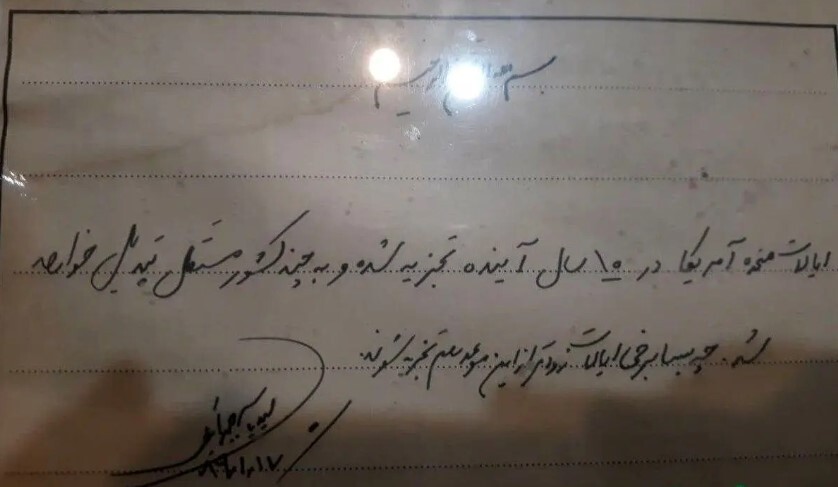 بسم الله الرحمن الرحیم
ایالات متحده آمریکا در ۱۵ سال آینده تجزیه شده و به چند کشور مستقل تبدیل خواهد
شد. چه بسا برخی ایالات زودتر از این موعد هم تجزیه شوند.